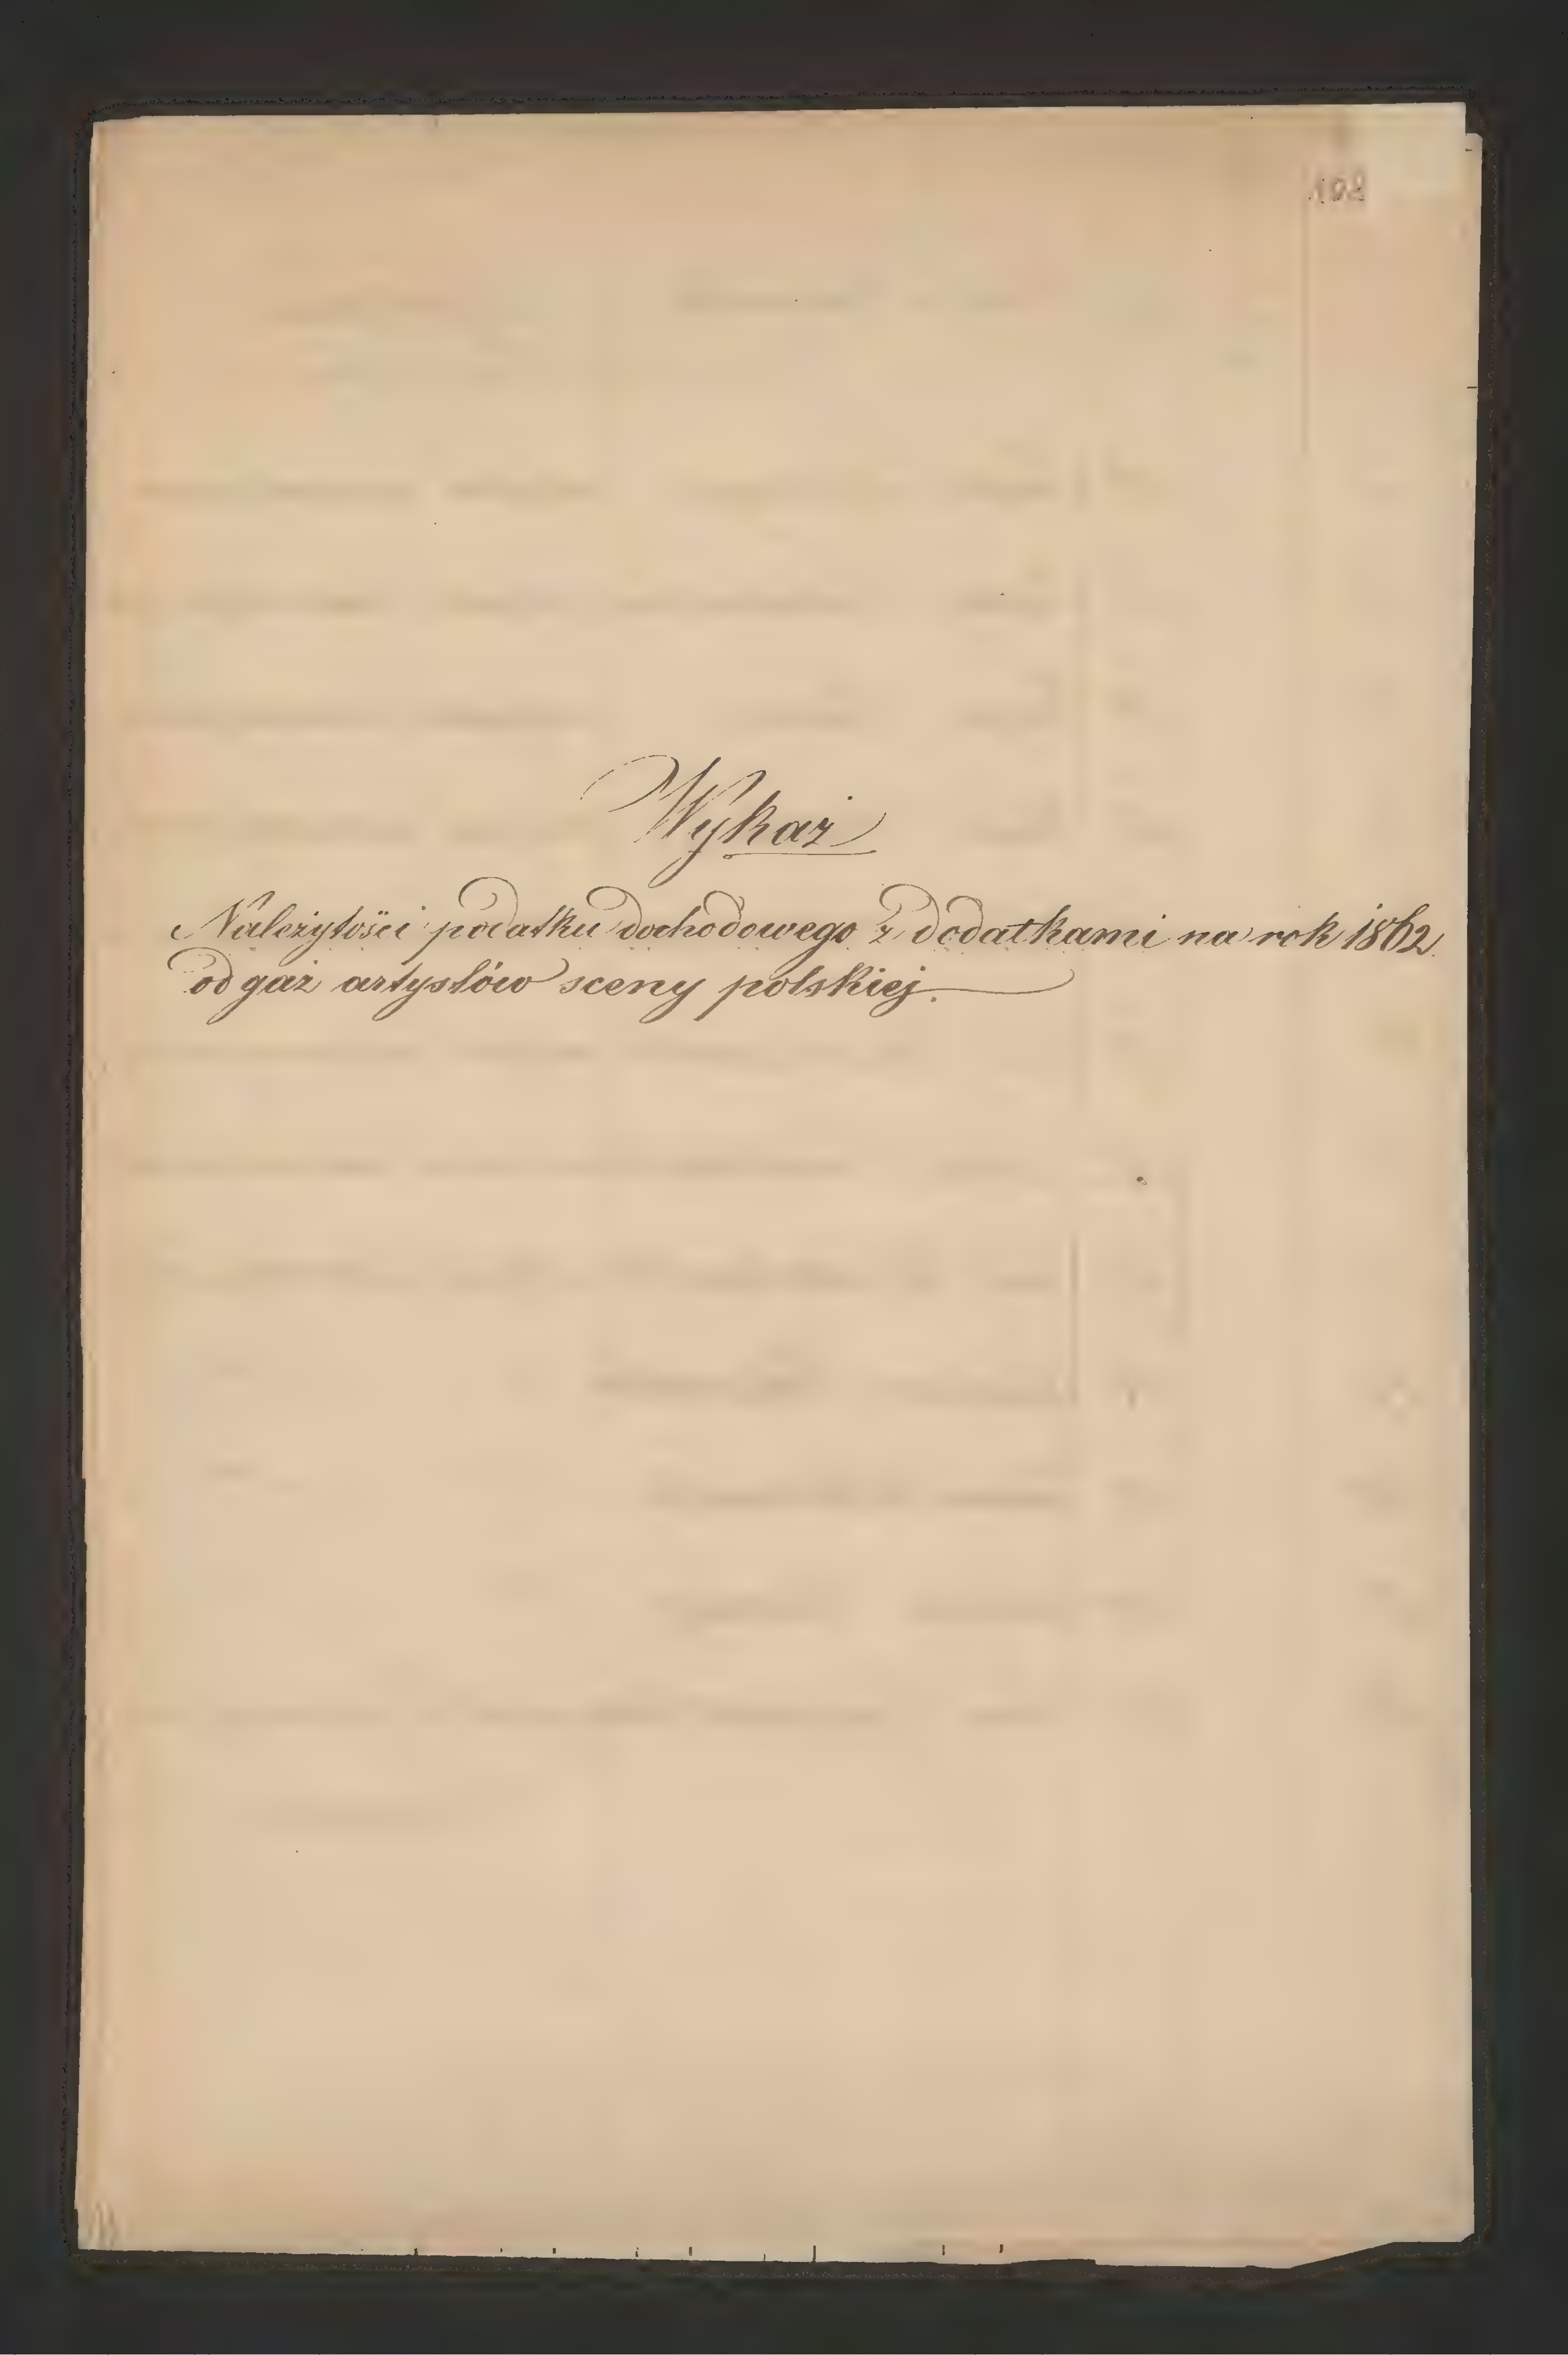 198
Wykaz
Należytości podatku dochodowego z dodatkami na rok 1862
od gaż artystów sceny polskiej.